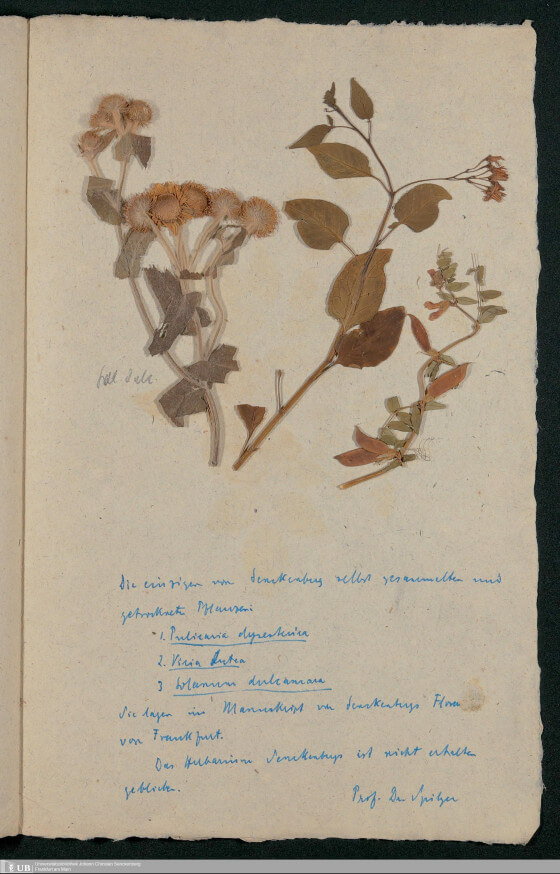 Die einzigen von Senckenberg selbst gesammelten und
getrockneten Pflanzen:
1. Pulicaria dysenterica
2. Vicia lutea
3 Solanum dulcamara
Sie lagen im Manuskript von Senckenbergs Flora
von Frankfurt.
Das Herbarium Senckenbergs ist nicht erhalten
geblieben.
Prof. Dr. Spilger
UB
Universitätsbibliothek Johann Christian Senckenberg
Frankfurt am Main